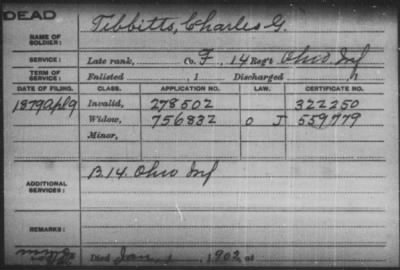 DEAD
NAME OF SOLDIER: Tibbitts, Charles G.
SERVICE: Late rank, Co. F, 14 Reg't Ohio Inf
TERM OF SERVICE: Enlisted , 1 Discharged , 1
DATE OF FILING. CLASS. APPLICATION NO. LAW. CERTIFICATE NO.
1879 Apl 9 Invalid, 278502 322250
Widow, 756832 O J 559779
Minor,
ADDITIONAL SERVICES: B. 14. Ohio Inf
REMARKS:
Died Jan. 1 , 1902, at